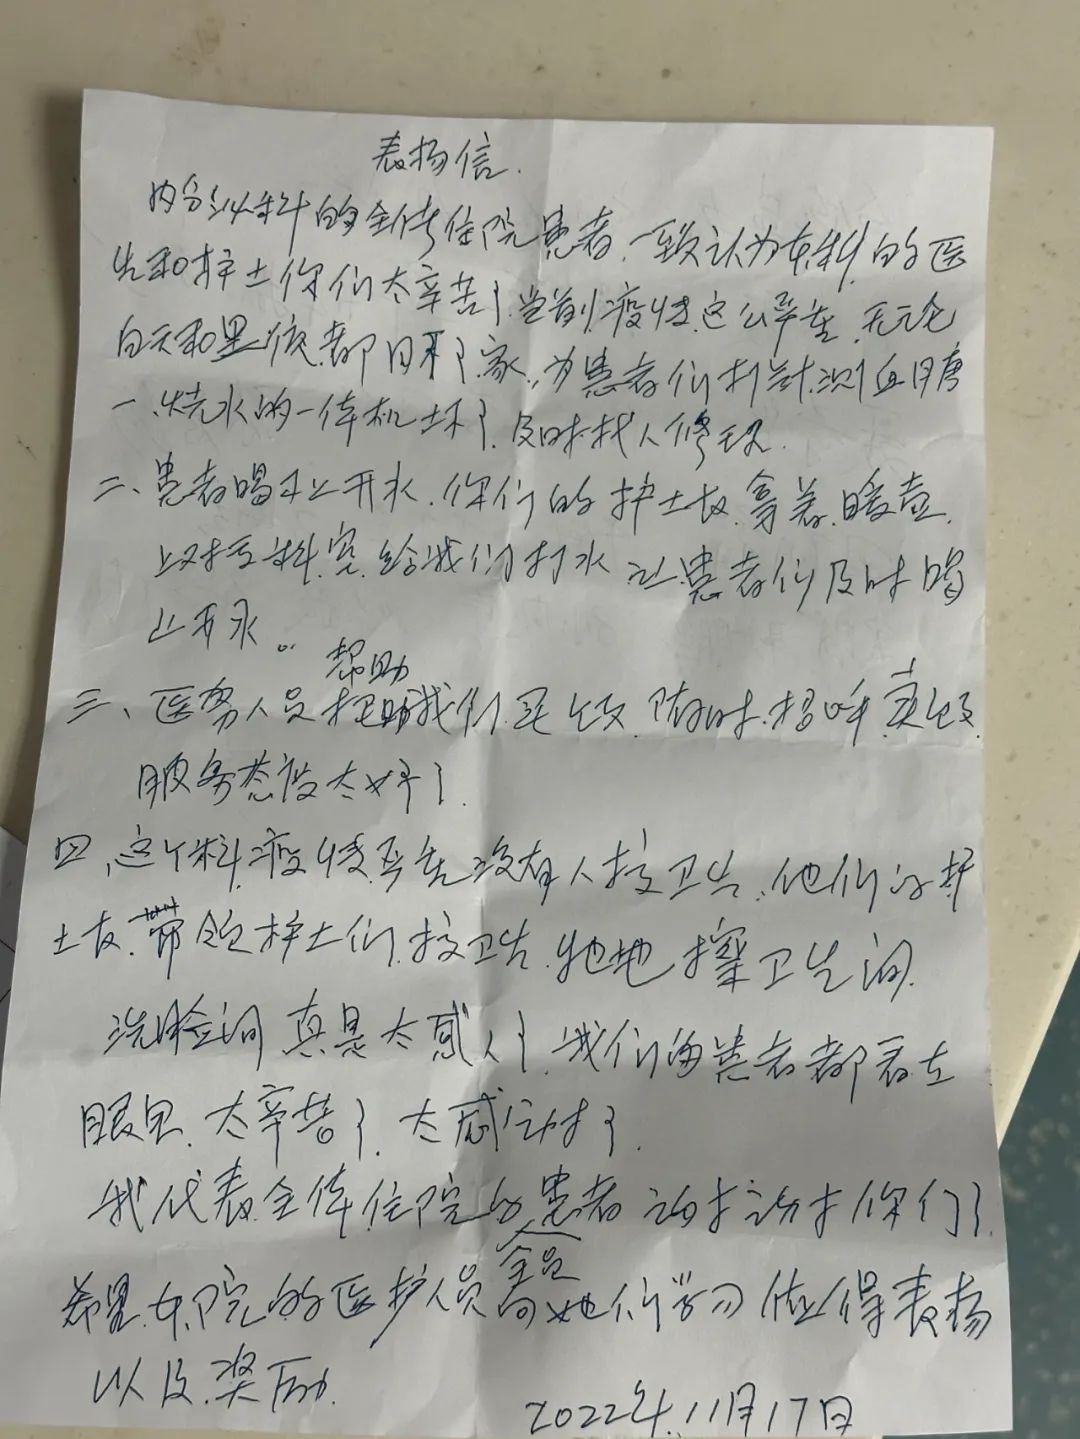 表扬信.
内分泌科的全体住院患者.一致认为本科的医
生和护士你们太辛苦了.当前疫情这么严重.无论
白天和黑夜.都回不了家.为患者们打针.测血糖
一、烧水的一体机坏了.及时找人修理.
二、患者喝不上开水.你们的护士长.拿着.暖壶.
上对面科室.给我们打水 让患者们及时喝
上开水。
帮助
三、医务人员 我们买饭.随时.招呼.卖饭.
服务态度太好了.
四、这个科.疫情严重没有人搞卫生.他们的护
士长.带领护士们.搞卫生. 擦卫生间.
洗脸间 真是太感人了.我们的患者都看在
眼里.太辛苦了.太感动了.
我代表全体住院的患者 谢谢你们了.
全员
希望本院的医护人员向她们学习 值得表扬
以及.奖励.
2022年.11月17日